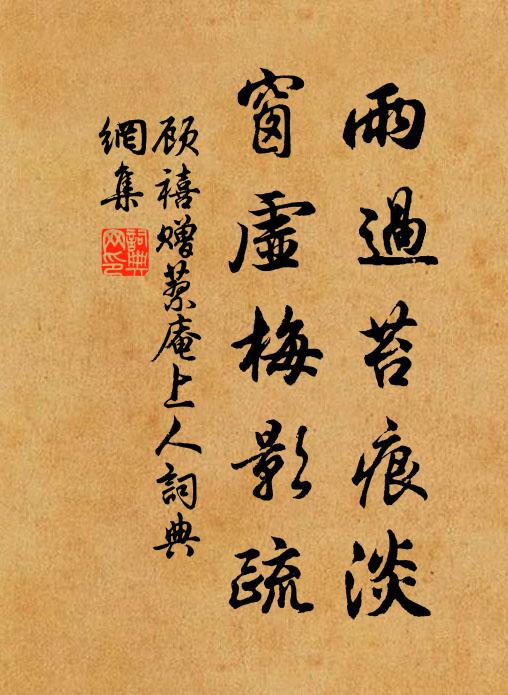 雨過苔痕淡
窗虛梅影疏
顾禧赠蒙庵上人詞典
網集
詞典網印